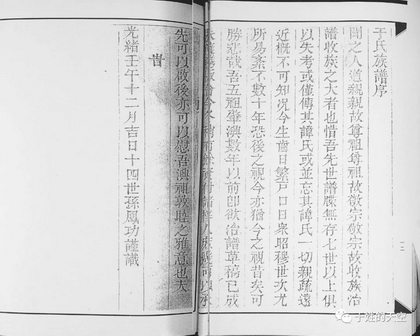 于氏族譜序
聞之人道親親故尊祖尊祖故敬宗敬宗故收族治
譜收族之大者也惜吾先世譜牒無存七世以上俱
以失考或僅傳其諱氏或並忘其諱氏一切親疏遠
近概不可知況今生齒日繁戶口日衆昭穆世次尤
所易紊不數十年恐後之視今亦猶今之視昔矣可
勝悲哉吾五祖肇澳數年以前卽欲治譜草稿已成
先可以啟後亦可以慰吾澳祖敦睦之雅意也夫
旹
光緒壬午十二月吉日十四世孫鳳功謹識
于姓的天空